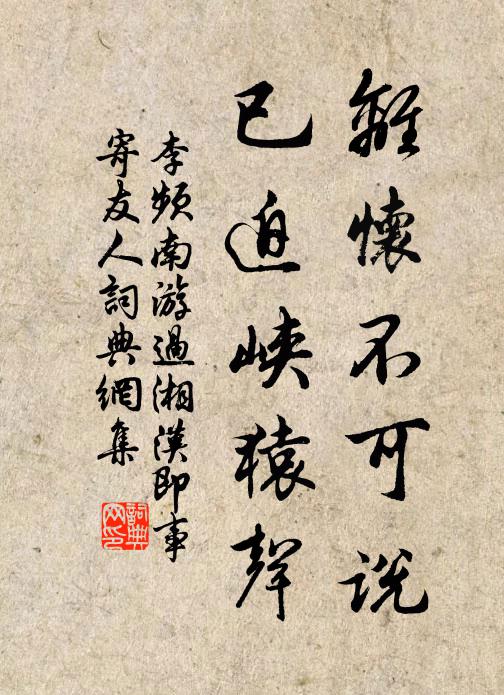 離懷不可說
已迫峽猿聲
李頻南游過湘漢即事
寄友人詞典網集
詞典網印